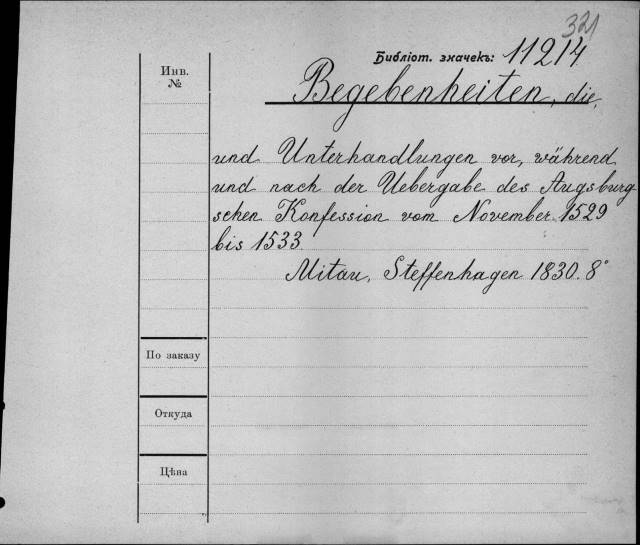 321
Библіот. значекъ: 11214
Инв.
№
Begebenheiten, die,
und Unterhandlungen vor, während
und nach der Uebergabe des Augsburg
schen Konfession vom November 1529
bis 1533
Mitau, Steffenhagen 1830. 8°
По заказу
Откуда
Цѣна